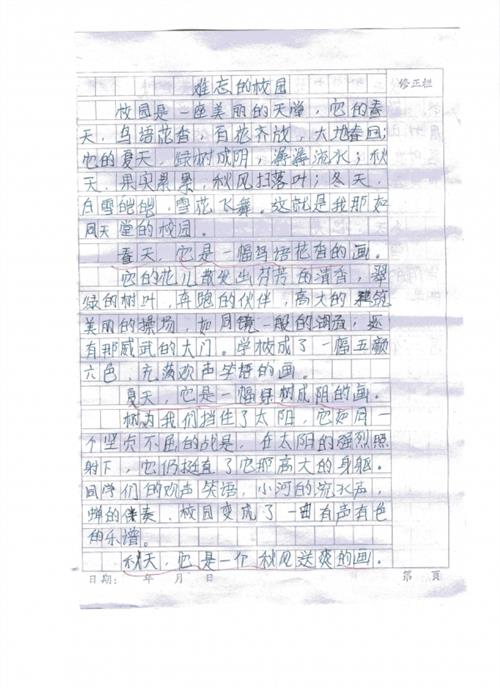 难忘的校园
修正栏
校园是一座美丽的天堂，它的春
天，鸟语花香，百花齐放，大地春回；
它的夏天，绿树成阴，潺潺流水；秋
天，果实累累，秋风扫落叶；冬天，
白雪皑皑，雪花飞舞。这就是我那如
同天堂的校园。
春天，它是一幅鸟语花香的画。
它的花儿散发出芬芳的清香，翠
绿的树叶，奔跑的伙伴，高大的建筑
美丽的操场，如同镜一般的湖面，还
有那威武的大门。学校成了一幅五颜
六色，充满欢声笑语的画。
夏天，它是一幅绿树成阴的画。
树为我们挡住了太阳，它如同一
个坚贞不屈的战是，在太阳的强烈照
射下，它仍挺直了它那高大的身躯。
同学们的欢声笑语，小河的流水声，
蝉的伴奏，校园变成了一曲有声有色
的乐谱。
秋天，它是一个秋风送爽的画。
日期： 年 月 日 第 页